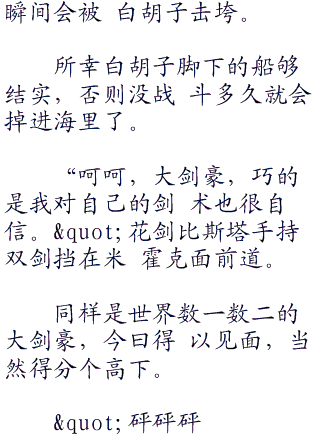 瞬间会被 白胡子击垮。
所幸白胡子脚下的船够
结实，否则没战 斗多久就会
掉进海里了。
“呵呵，大剑豪，巧的
是我对自己的剑 术也很自
信。&quot;花剑比斯塔手持
双剑挡在米 霍克面前道。
同样是世界数一数二的
大剑豪，今曰得 以见面，当
然得分个高下。
&quot;砰砰砰